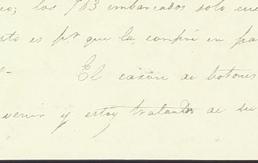 los 783 embarcados solo
es pr que la compré en
El cajón de botones
venir y estoy tratando de su